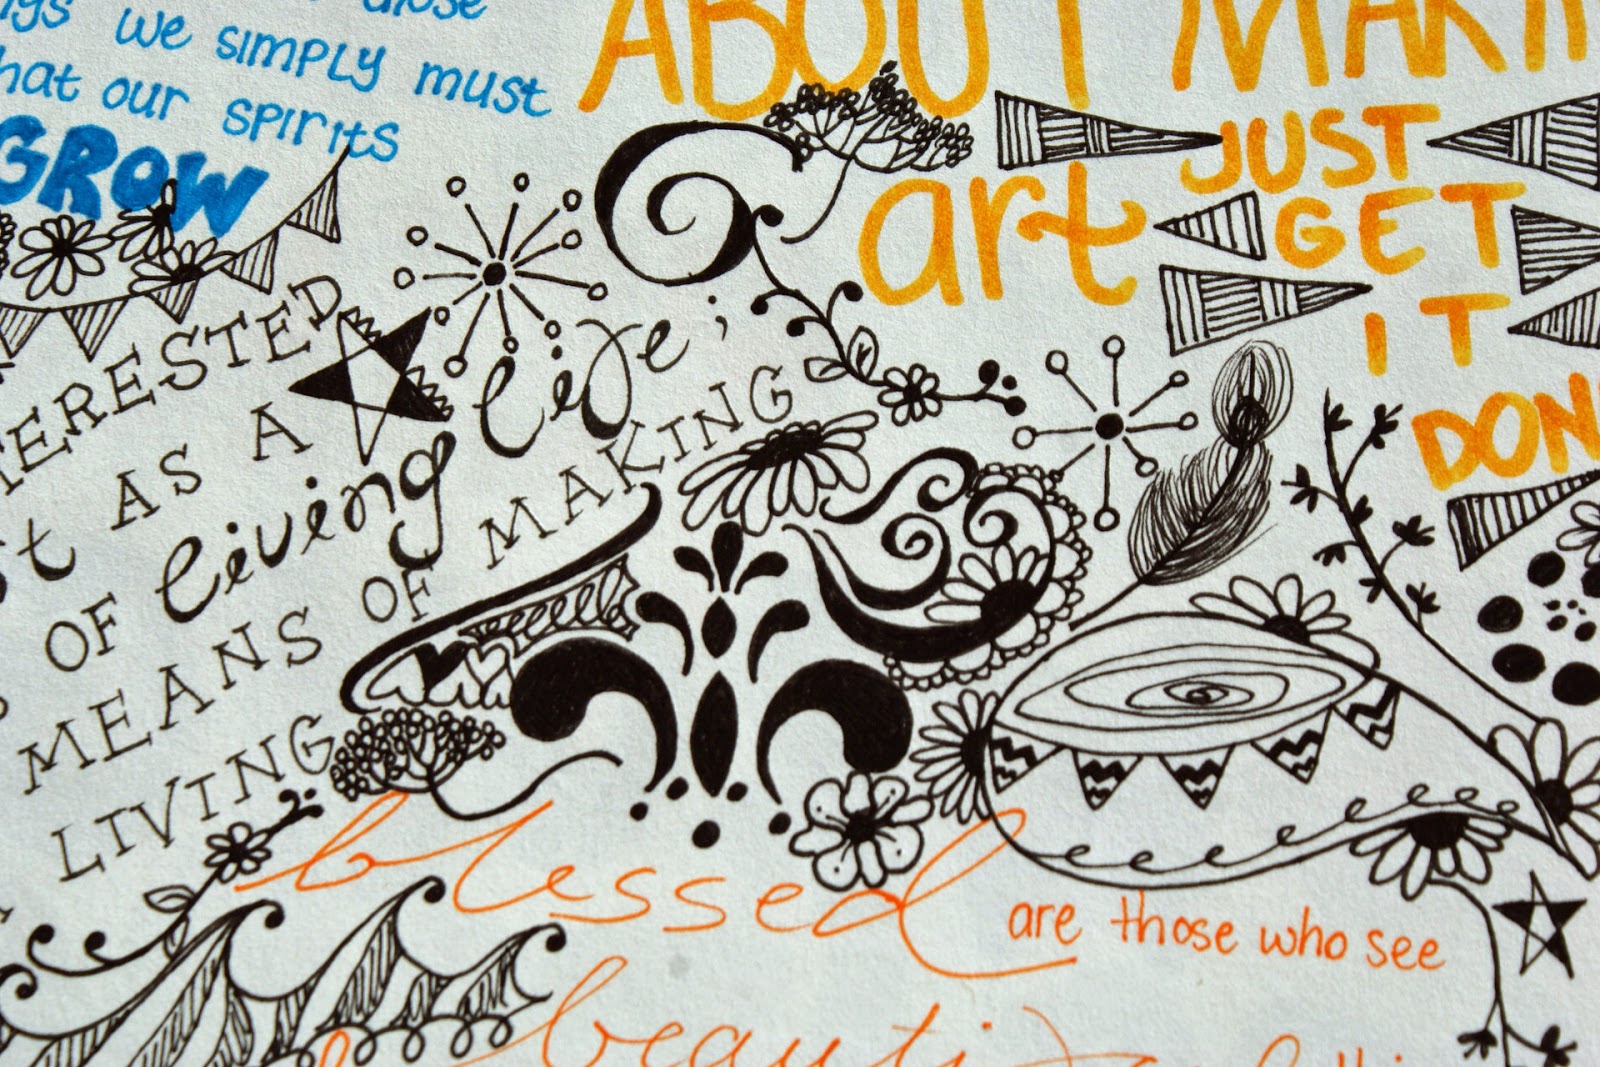 we simply must
that our spirits
GROW
ABOUT
art
JUST
GET
IT
INTERESTED
AS A
OF living life;
MEANS OF MAKING
LIVING
blessed are those who see